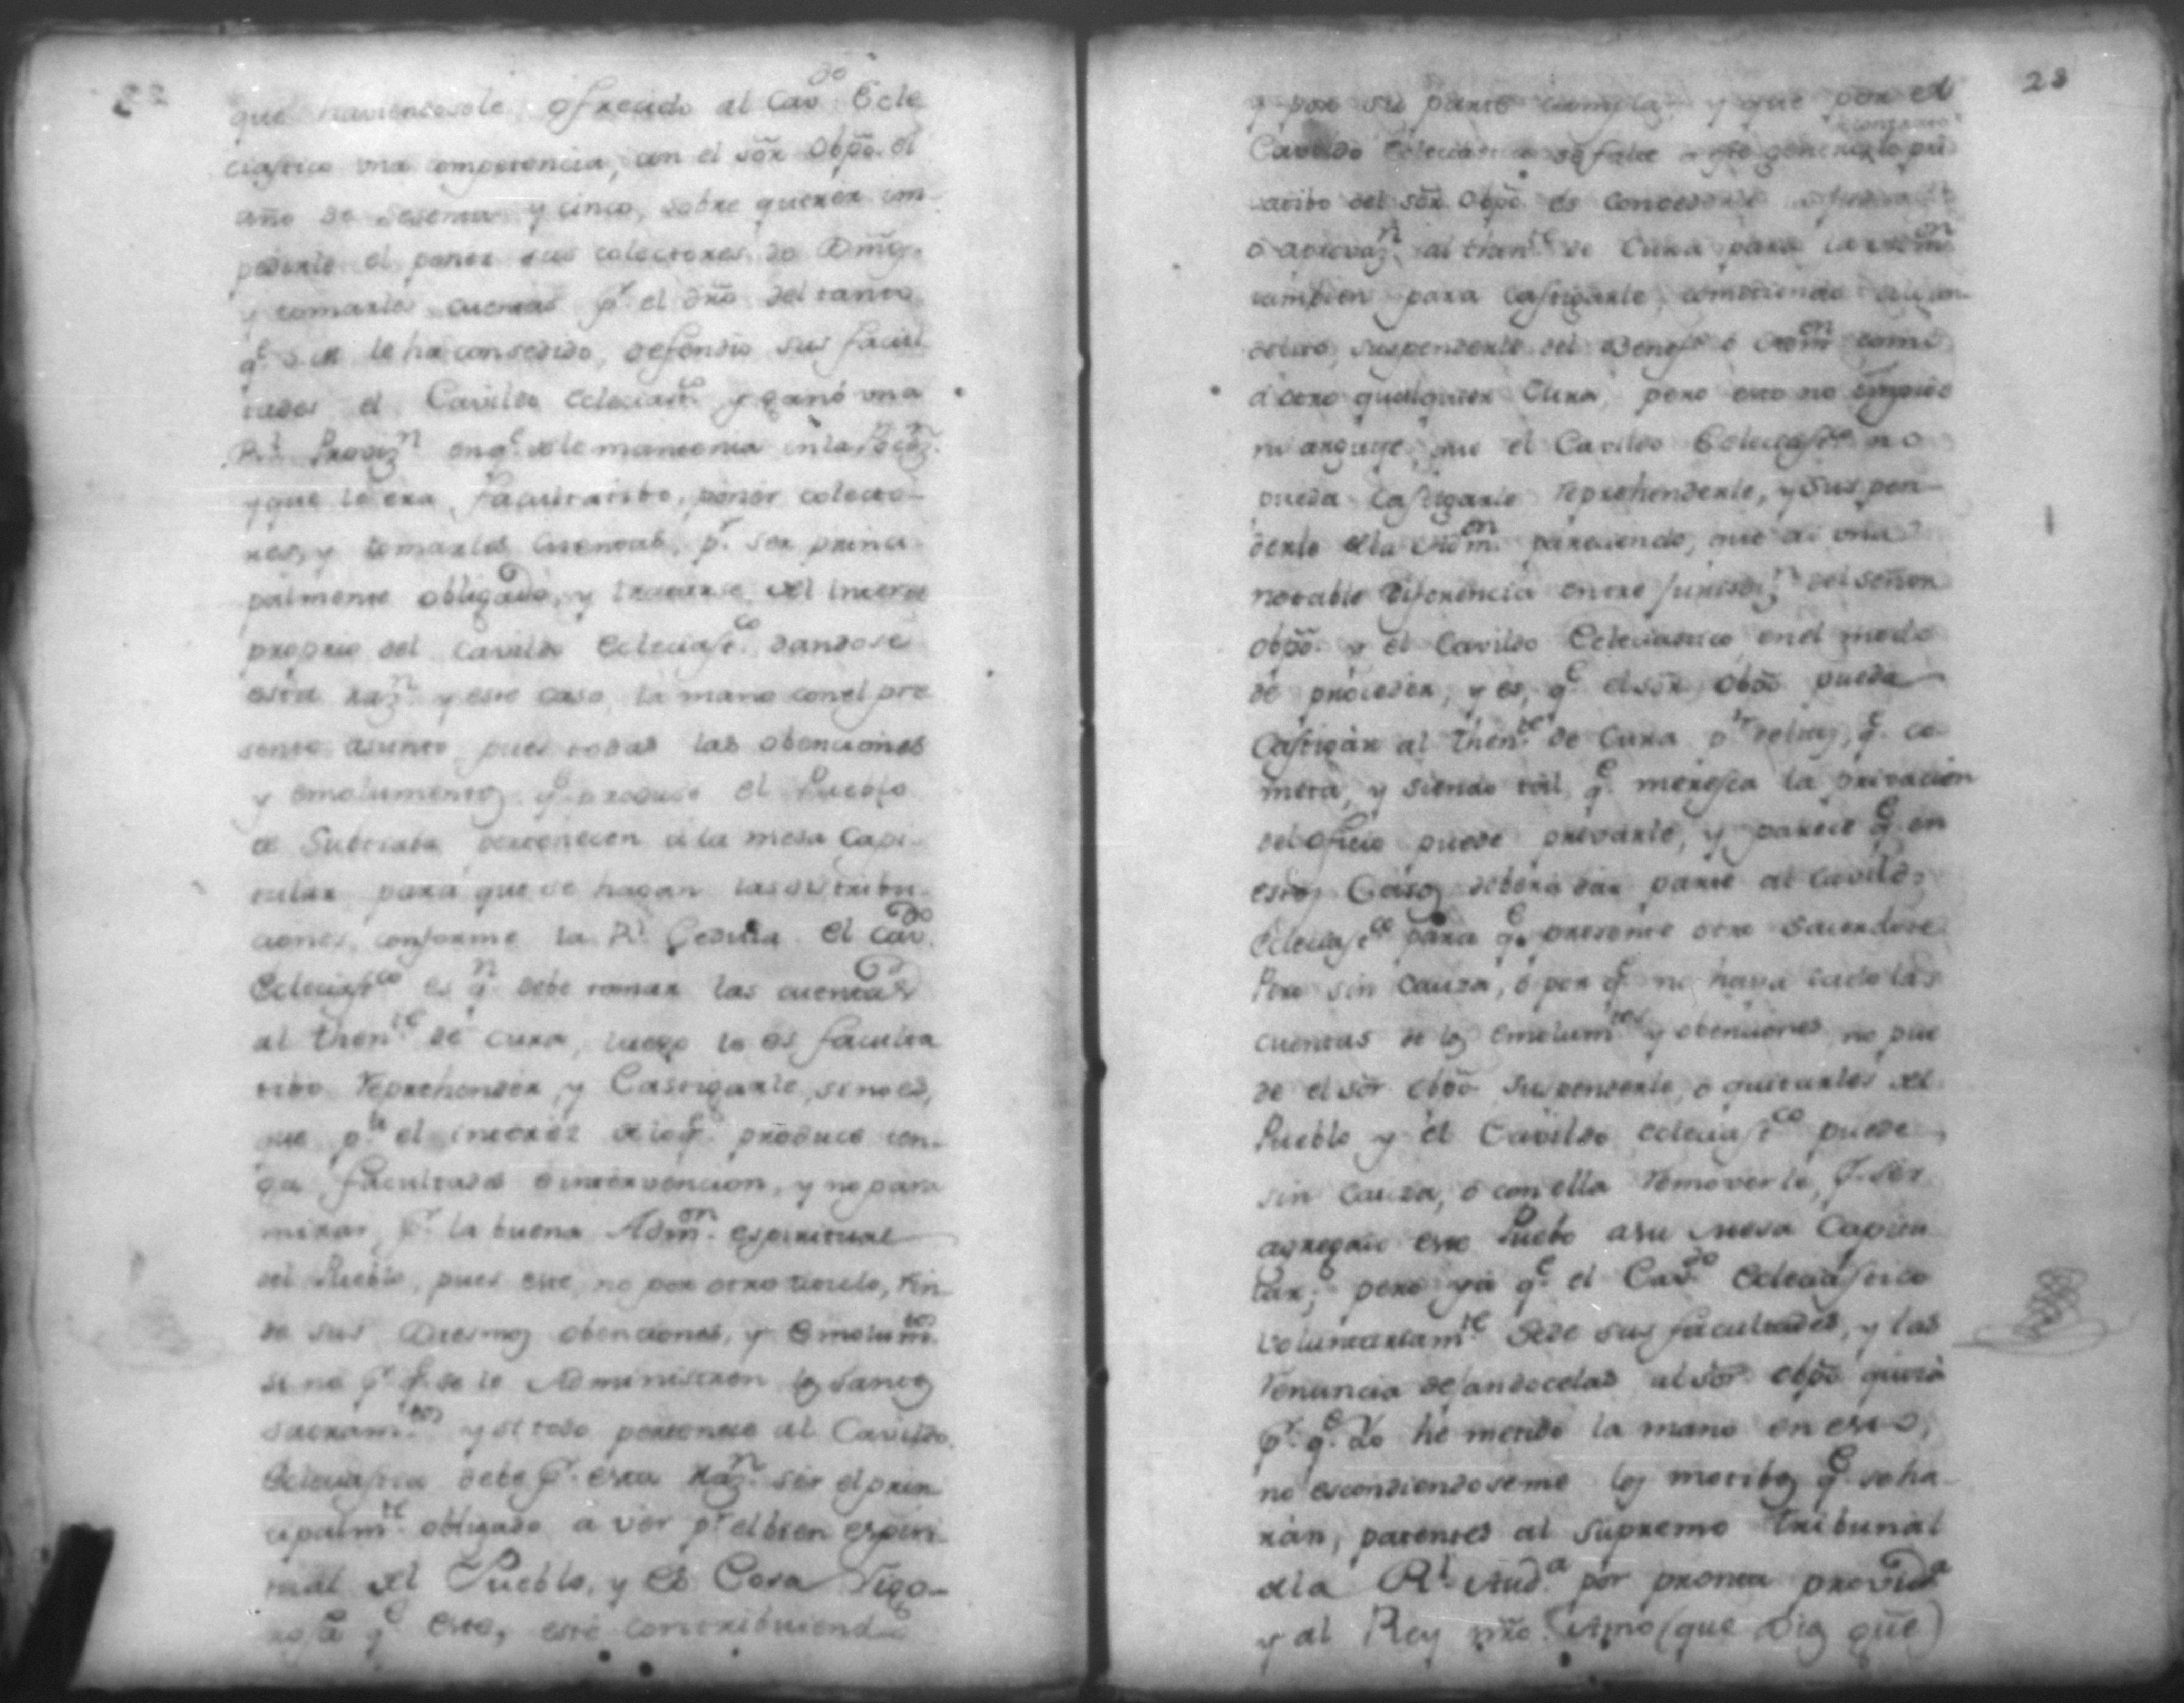 22
que haviendosele ofrecido al Cavdo Ecle
ciastico una competencia, con el sõr Obpõ. el
año de sesenta y cinco, sobre querer im-
pedirle el poner sus colectores de Dmõs.
y tomarles cuentas pr. el dro del tanto
qe. se le ha consedido, defendio sus facul
tades el Cavildo Eclesiastco. y ganó una
Rl. Provizn en qe. se le mantenia en la Poczn.
y que le era facultatibo, poner colecto-
res, y tomarles Cuentas, pr. ser princi-
palmente obligado, y tratarse del interes
proprio del Cavildo Eclesiastco. dandose
esta razn. y este caso, la mano con el pre
sente asunto, pues todas las obenciones
y emolumentos qe. produce el Pueblo
de Subtiaba pertenecen a la mesa Capi-
tular para que se hagan las distribu-
ciones, conforme la Rl. Cedula. El Cavdo.
Eclesiastco es qn. debe tomar las cuentas
al thente. de cura, luego le es faculta
tibo Reprehender, y Castigarle, si no es,
que pr. el interéz de lo qe. produce ten-
ga facultades e intervencion, y no para
mirar pr. la buena Admon. espiritual
del Pueblo, pues este, no por otro titulo, rin-
de sus Diesmos obenciones, y Emolumtos.
si no pr. qe. se le Administren los santos
sacramtos. y si todo pertenece al Cavildo
Eclesiastico debe pr. esta Razn. ser el prin
cipalmte. obligado a ver pr. el bien espiri-
tual del Pueblo, y es Cosa Rigo-
rosa qe este, esté contribuiendo
23
y por su parte cumpla y que por el
Cavildo Eclesiastico se falte a este
contrato
del sõr Obpõ es Concederle
ó aprovazn. al thente. de Cura para la Admon
tambien para castigarle, cometiendo algun
delito, suspenderle del Benefo. ó Admon como
á otro qualquier Cura, pero esto no impide
ni arguye, que el Cavildo Eclesiastco no
pueda Castigarle reprehenderle, y Suspen-
derle de la Admon. pareciendo, que ai una
notable diferencia entre Jurisdizn. del señor
Obpõ. y el Cavildo Eclesiastico en el modo
de proceder, y es, qe. el sõr Obpõ pueda
Castigar al thente. de Cura pr. delitos, qe. co-
meta, y siendo tál qe. meresca la privacion
del oficio puede privarle, y parece qe. en
estos Casos deberá dar parte al Cavildo,
Eclesiastco para qe. presente otro Sacerdote
Pero sin Cauza, ó por qe. no haya dado las
cuentas de los emolumtos y obenciones, no pue
de el sõr Obpõ suspenderle, o quitarles del
Pueblo y el Cavildo eclesiastco puede
sin Cauza, ó con ella removerle, pr. ser
agregado este Puebo a su Mesa Capitu
lar; pero ya qe. el Cavdo. Eclesiastico
voluntariamte. cede sus facultades, y las
renuncia dejandocelas al sõr obpõ quizá
pr. qe. Yo hé metido la mano en esto,
no escondiendoseme los motibos qe. se ha-
rán, patentes al Supremo Tribunal
de la Rl. Auda. por pronta providª
y al Rey nrõ. Amo (que Dios güe)